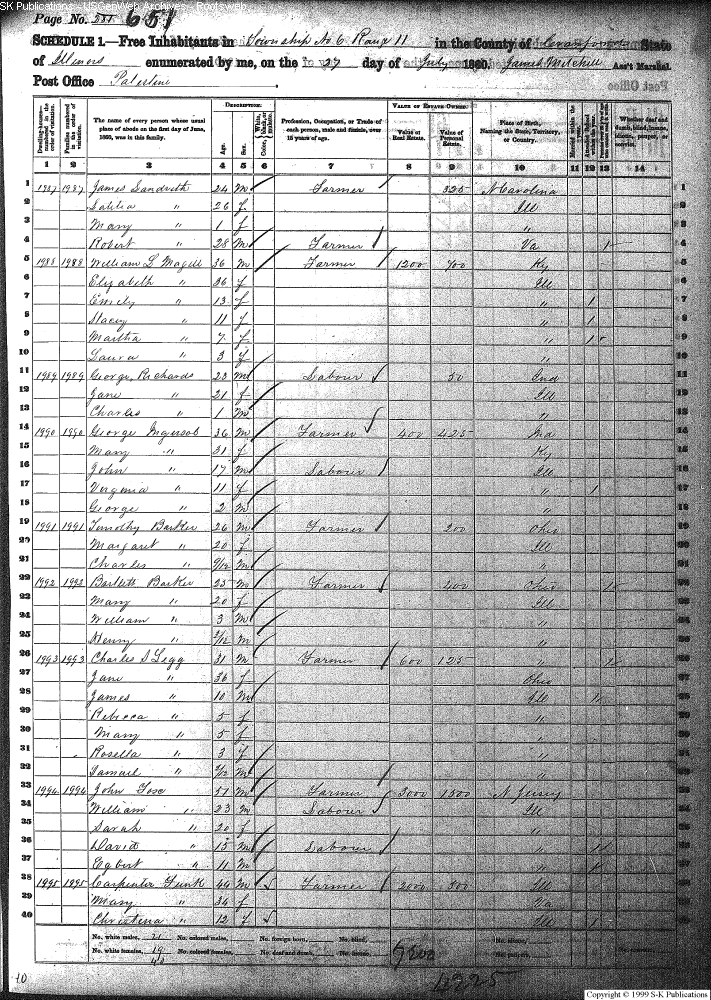 SK Publications - USGenWeb Archives - Rootsweb
Page No. 651
SCHEDULE 1.—Free Inhabitants in Township No 6 Range 11 in the County of Crawford State
of Illinois enumerated by me, on the 27 day of July 1860. James Mitchell Ass't Marshal.
Post Office Palestine.
Dwelling-houses—numbered in the order of visitation.
Families numbered in the order of visitation.
The name of every person whose usual place of abode on the first day of June, 1860, was in this family.
DESCRIPTION.
Age. Sex. Color, White, black, or mulatto.
Profession, Occupation, or Trade of each person, male and female, over 15 years of age.
VALUE OF ESTATE OWNED.
Value of Real Estate. Value of Personal Estate.
Place of Birth, Naming the State, Territory, or Country.
Married within the year.
Whether deaf and dumb, blind, insane, idiotic, pauper, or convict.
1 2 3 4 5 6 7 8 9 10 11 12 13 14
1 1987 1987 James 24 m Farmer 325 N Carolina 1
2 " 26 f Ill 2
3 Mary " 1 f " 3
4 Robert " 28 m Farmer Va 1 4
5 1988 1988 William L Magill 36 m Farmer 1200 700 Ky 5
6 Elizabeth " 36 f Ill 6
7 Emily " 13 f " 1 7
8 Stacey " 11 f " 1 8
9 Martha " 7 f " 1 9
10 Laura " 3 f " 10
11 1989 1989 George Richards 23 m Labour 50 Ind 11
12 Jane " 21 f Ill 12
13 Charles " 1 m " 13
14 1990 1990 George Ingersob 36 m Farmer 400 425 Ind 14
15 Mary " 31 f Ky 15
16 John " 17 m Labour Ill 16
17 Virginia " 11 f " 1 17
18 George " 2 m " 18
19 1991 1991 Timothy Barker 26 m Farmer 200 Ohio 19
20 Margaret " 20 f Ill 20
21 Charles " 9/12 m " 21
22 1992 1992 Bartlett Barker 25 m Farmer 400 Ohio 1 22
23 Mary " 20 f Ill 23
24 William " 3 m " 24
25 Henry " 3/12 m " 25
26 1993 1993 Charles S Legg 31 m Farmer 600 125 " 1 26
27 Jane " 36 f Ohio 27
28 James " 10 m Ill 1 28
29 Rebecca " 5 f " 29
30 Mary " 5 f 30
31 Rosella " 3 f " 31
32 Samuel " m " 32
33 1994 1994 John Fose 57 m Farmer 3000 1500 N Jersey 33
34 William " 23 m Labour Ill 34
35 Sarah " 20 f " 35
36 David " 15 m Labour " 1 36
37 Egbert " 11 m " 1 37
38 1995 1995 Carpenter Funk 44 m Farmer 2000 300 Ill 38
39 Mary " 34 f Va 39
40 Christena " 12 f Ill 1 40
No. white males, 21 No. colored males, No. foreign born, No. blind, No. idiotic,
No. white females, 19 No. colored females, No. deaf and dumb, No. insane, No. paupers,
40 7200 4825
10
Copyright © 1999 S-K Publications